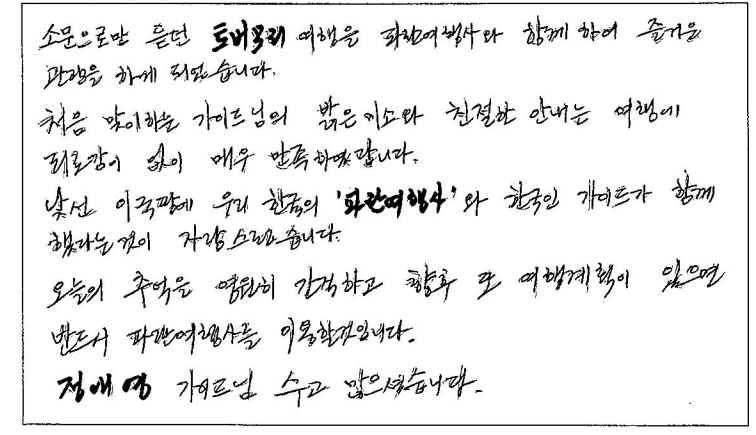 소문으로만 듣던 토버모리 여행을 파란여행사와 함께 하여 즐거운
관광을 하게 되었습니다.
처음 맞이하는 가이드님의 밝은 미소와 친절한 안내는 여행에
피로감이 없이 매우 만족하였답니다.
낯선 이국땅에 우리 한국의 '파란여행사'와 한국인 가이드가 함께
했다는것이 자랑스러웠습니다.
오늘의 추억을 영원히 간직하고 향후 또 여행계획이 있으면
반드시 파란여행사를 이용할것입니다.
정애영 가이드님 수고 많으셨습니다.